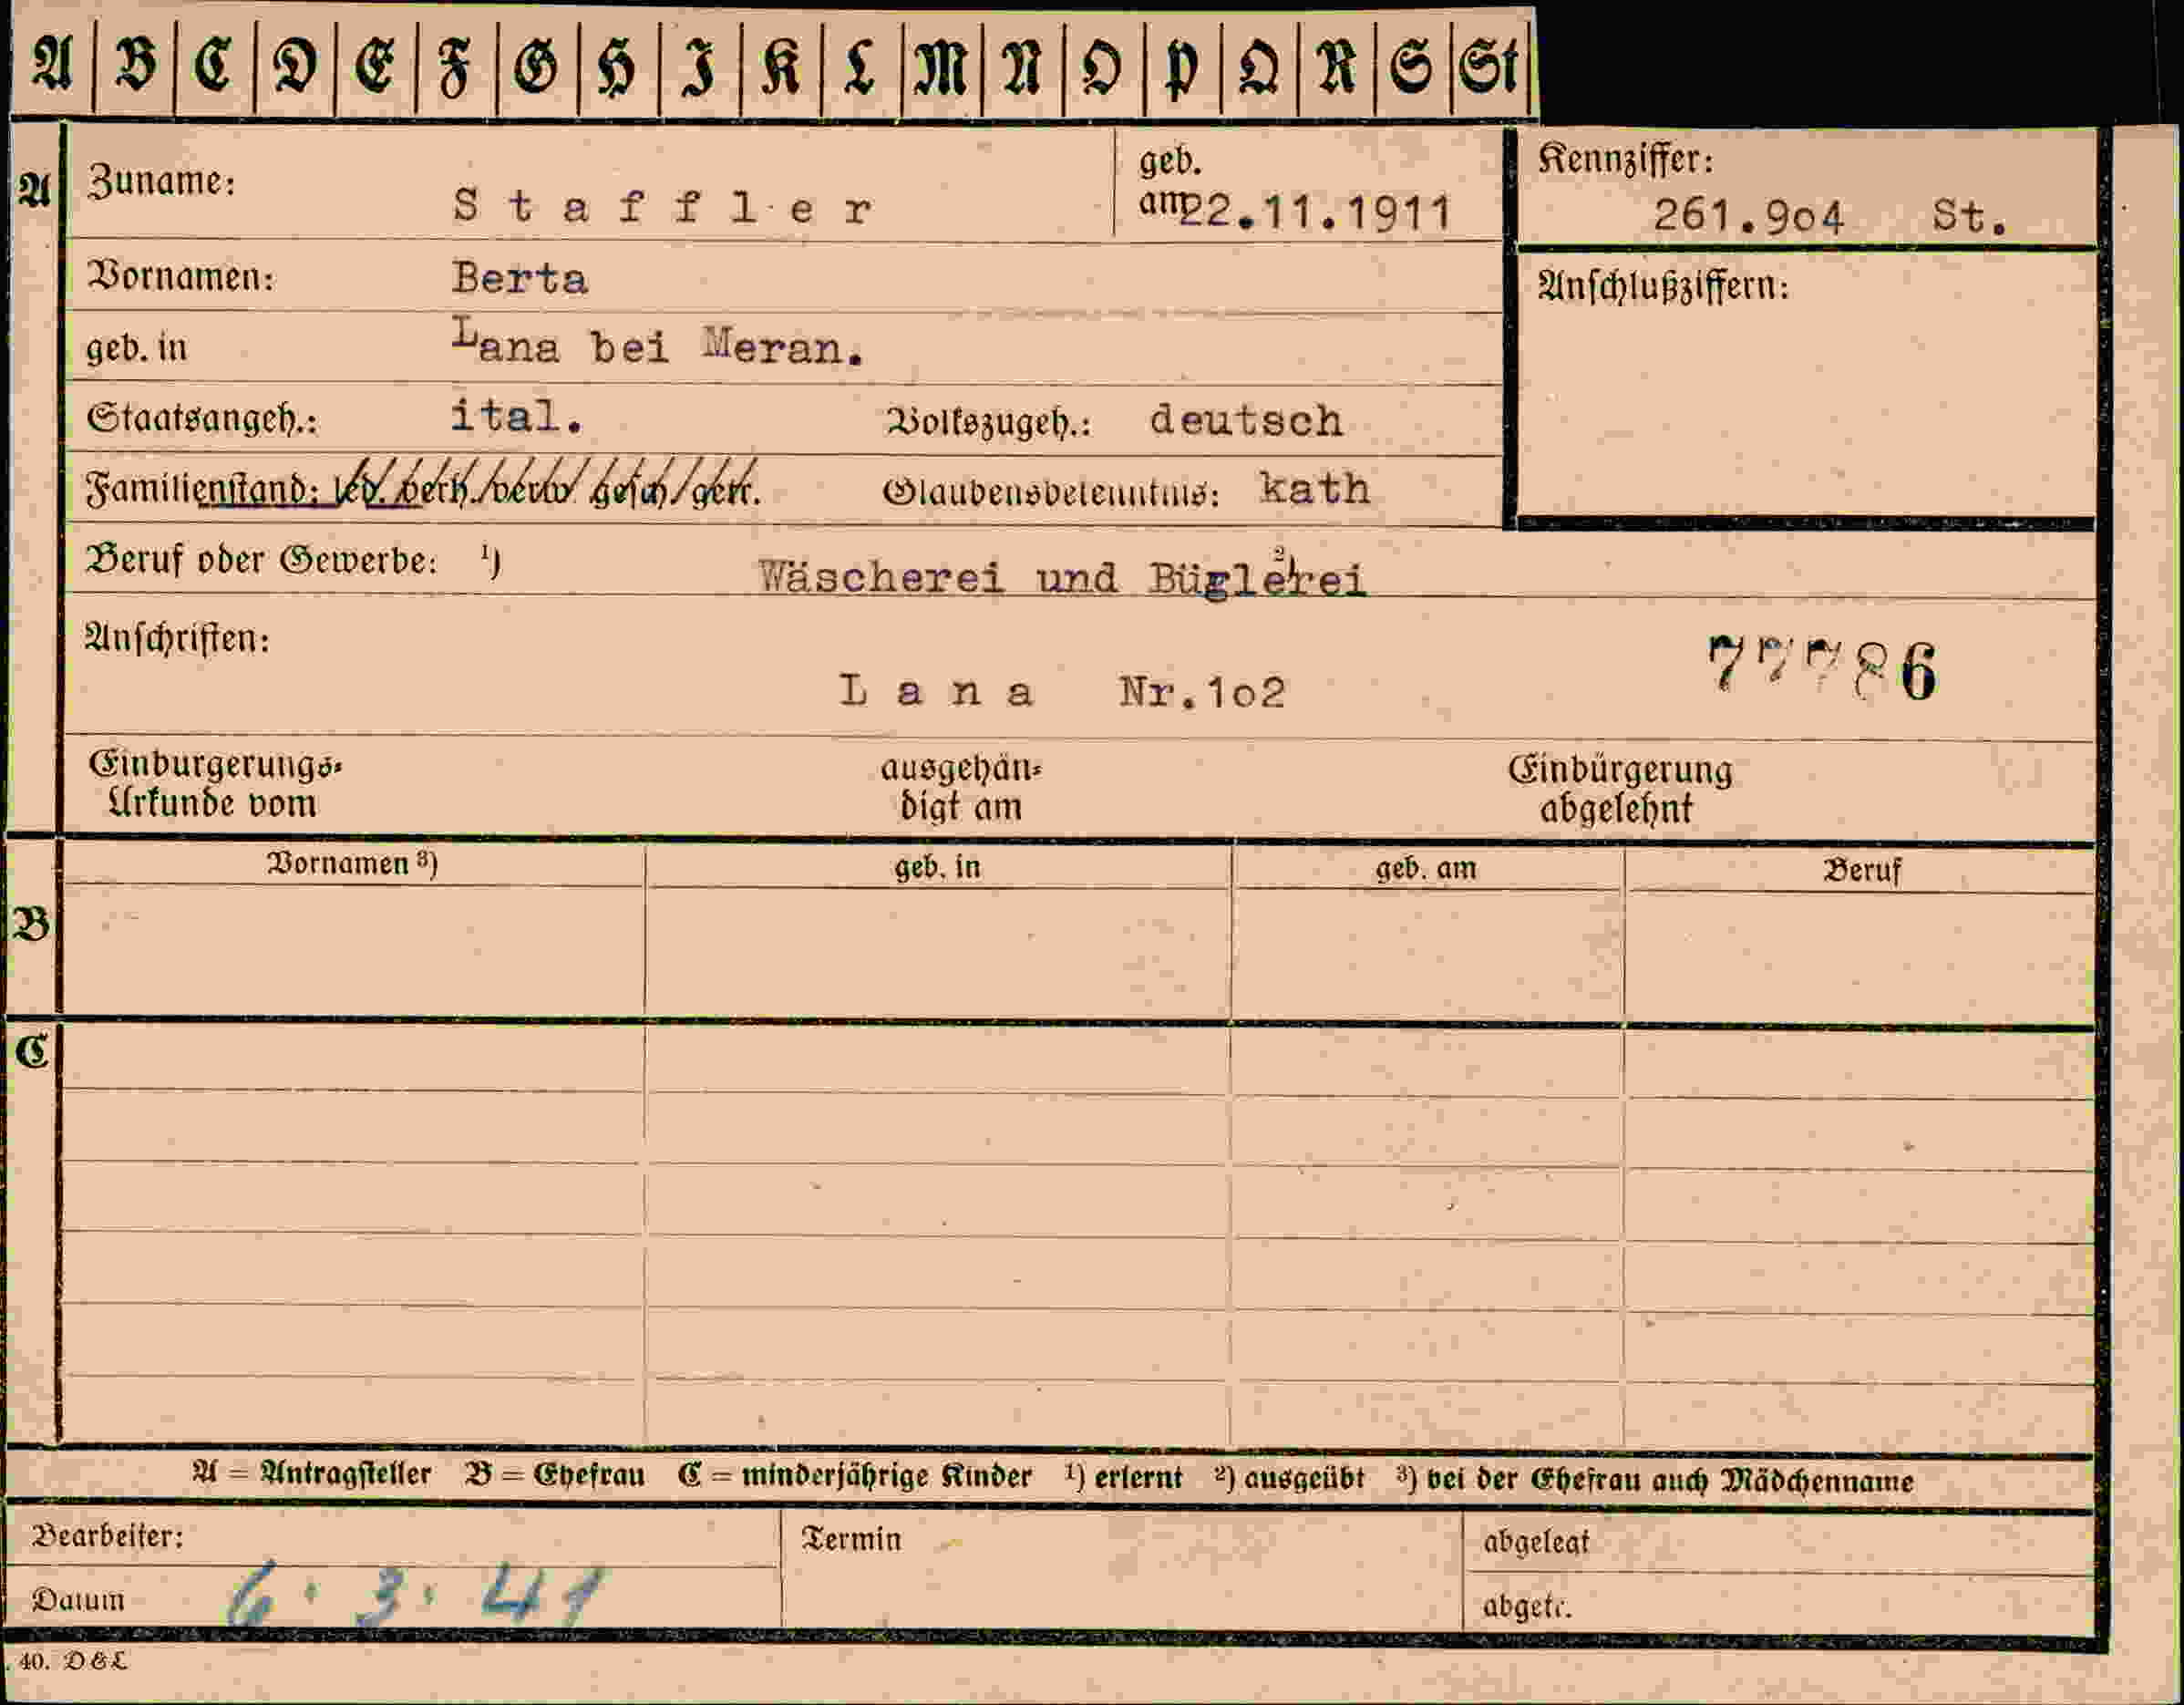 A B C D E F G H I K L M N O P Q R S St
A Zuname: Staffler geb. am 22.11.1911 Kennziffer: 261.9o4 St.
Vornamen: Berta Anschlußziffern:
geb. in Lana bei Meran.
Staatsangeh.: ital. Volkszugeh.: deutsch
Familienstand: led. verh. verw. gesch. getr. Glaubensbekenntnis: kath
Beruf oder Gewerbe: ¹) Wäscherei und Büglerei ²)
Anschriften: 77786
Lana Nr.1o2
Einbürgerungs- ausgehän- Einbürgerung
Urkunde vom digt am abgelehnt
Vornamen ³) geb. in geb. am Beruf
B
C
A = Antragsteller B = Ehefrau C = minderjährige Kinder ¹) erlernt ²) ausgeübt ³) bei der Ehefrau auch Mädchenname
Bearbeiter: Termin abgelegt
Datum 6. 3. 41 abgetr.
40. D&L